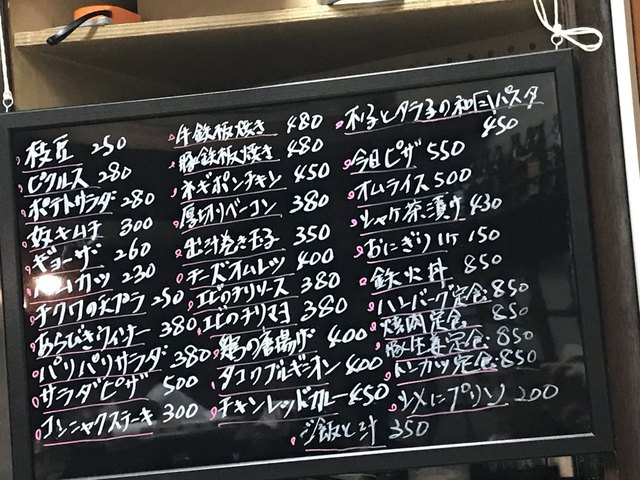 枝豆 250
ピクルス 280
ポテトサラダ 280
キムチ 300
ギョーザ 260
ハムカツ 230
チクワの天プラ 250
あらびきウィンナー 380
パリパリサラダ 380
サラダピザ 500
コンニャクステーキ 300
牛鉄板焼き 480
豚鉄板焼き 480
ネギポンチキン 450
厚切りベーコン 380
出汁巻き玉子 350
チーズオムレツ 400
エビのチリソース 380
エビのチリマヨ 380
鶏の唐揚げ 400
タコのプルギニオン 400
チキンレッドカレー 450
ご飯と汁 350
タラ子の和風パスタ
450
今日ピザ 550
オムライス 500
シャケ茶漬け 430
おにぎり1ケ 150
鉄火丼 850
ハンバーグ定食 850
焼肉定食 850
豚生姜定食 850
トンカツ定食 850
〆にプリン 200